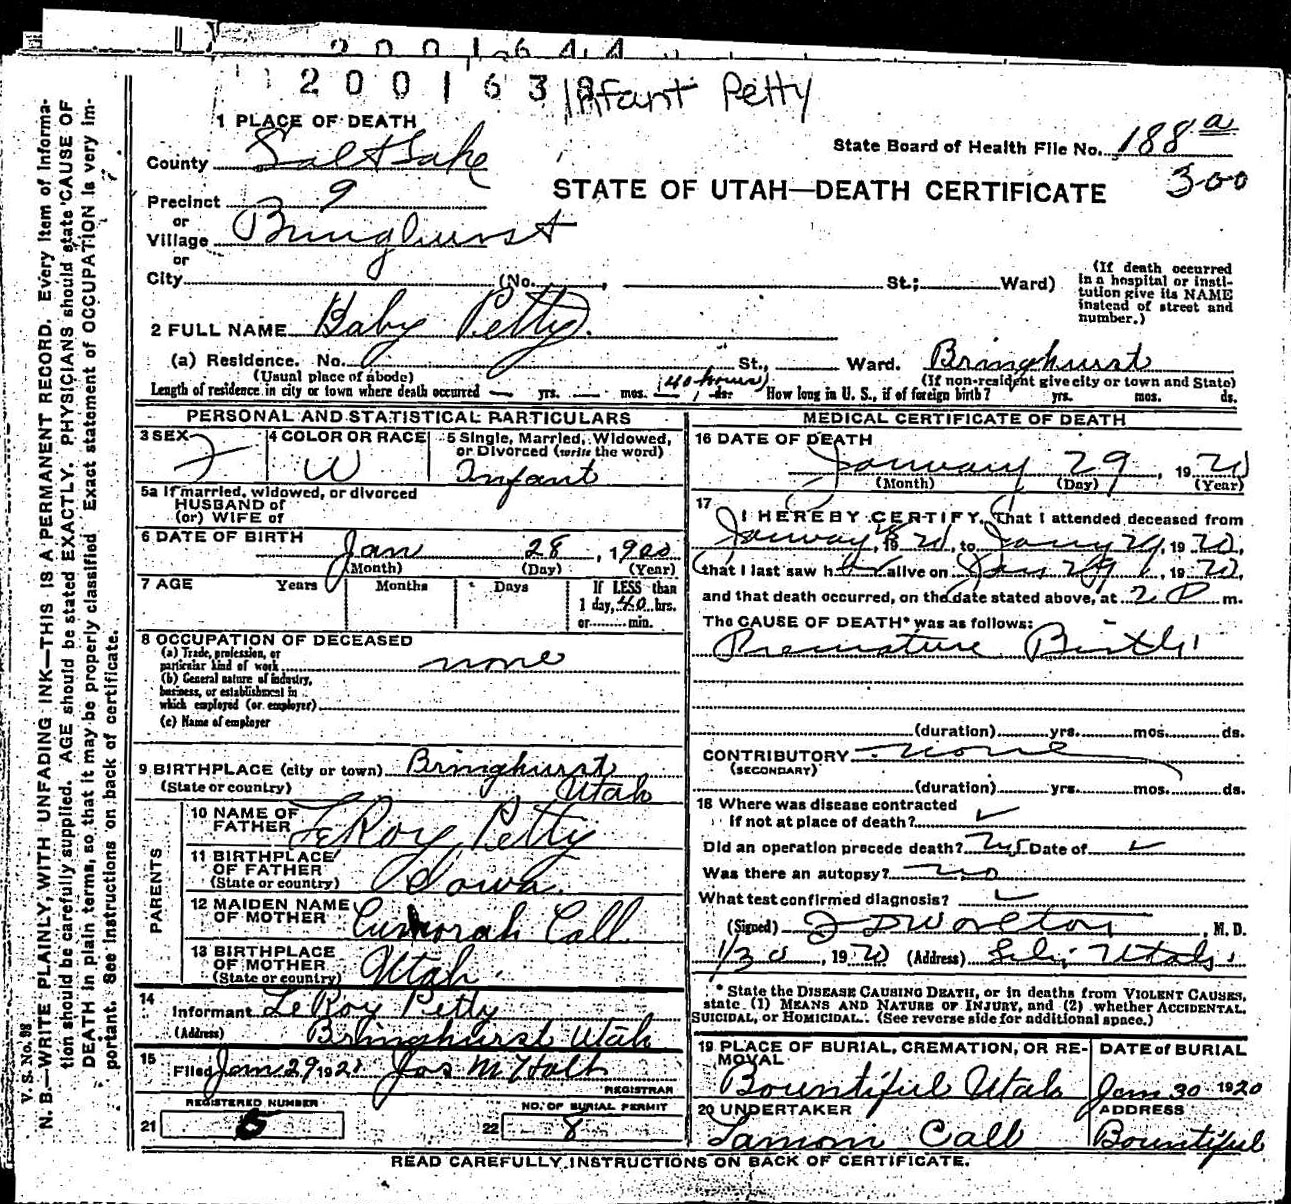 2001644
2001638 Infant Petty
1 PLACE OF DEATH
County Salt Lake
State Board of Health File No. 188 a
300
Precinct 9
STATE OF UTAH—DEATH CERTIFICATE
or
Village Bringhurst
or
City (No. , St.; Ward)
(If death occurred in a hospital or insti-
tution give its NAME
instead of street and
number.)
2 FULL NAME Baby Petty.
(a) Residence. No. St., Ward. Bringhurst
(Usual place of abode) (If non-resident give city or town and State)
Length of residence in city or town where death occurred — yrs. — mos. (40 hours) ds. How long in U. S., if of foreign birth? yrs. mos. ds.
PERSONAL AND STATISTICAL PARTICULARS
3 SEX F
4 COLOR OR RACE W
5 Single, Married, Widowed,
or Divorced (write the word)
Infant
5a If married, widowed, or divorced
HUSBAND of
(or) WIFE of
6 DATE OF BIRTH
Jan 28, 1920
(Month) (Day) (Year)
7 AGE Years Months Days If LESS than
1 day, 40 hrs.
or min.
8 OCCUPATION OF DECEASED
(a) Trade, profession, or
particular kind of work none
(b) General nature of industry,
business, or establishment in
which employed (or employer)
(c) Name of employer
9 BIRTHPLACE (city or town) Bringhurst
(State or country) Utah
PARENTS
10 NAME OF
FATHER LeRoy Petty
11 BIRTHPLACE
OF FATHER
(State or country) Iowa.
12 MAIDEN NAME
OF MOTHER Cumorah Call
13 BIRTHPLACE
OF MOTHER
(State or country) Utah.
14
Informant LeRoy Petty
(Address) Bringhurst Utah
15
Filed Jan 29, 192 Jos M Holt
REGISTRAR
REGISTERED NUMBER
21
NO. OF BURIAL PERMIT
22 8
MEDICAL CERTIFICATE OF DEATH
16 DATE OF DEATH
January 29, 1920
(Month) (Day) (Year)
17
I HEREBY CERTIFY, That I attended deceased from
January, 1920, to 29, 1920,
that I last saw her alive on Jan 29, 1920,
and that death occurred, on the date stated above, at 2 P m.
The CAUSE OF DEATH* was as follows:
Premature Birth
(duration) yrs. mos. ds.
CONTRIBUTORY none
(SECONDARY)
(duration) yrs. mos. ds.
18 Where was disease contracted
if not at place of death?
Did an operation precede death? Date of
Was there an autopsy? no
What test confirmed diagnosis?
(Signed) , M. D.
1/30, 1920 (Address) Utah.
* State the DISEASE CAUSING DEATH, or in deaths from VIOLENT CAUSES,
state (1) MEANS AND NATURE OF INJURY, and (2) whether ACCIDENTAL,
SUICIDAL, or HOMICIDAL. (See reverse side for additional space.)
19 PLACE OF BURIAL, CREMATION, OR RE-
MOVAL
Bountiful Utah
DATE of BURIAL
Jan 30 1920
20 UNDERTAKER
Lamoni Call
ADDRESS
Bountiful
READ CAREFULLY INSTRUCTIONS ON BACK OF CERTIFICATE.
V. S. No. 98
N. B.—WRITE PLAINLY, WITH UNFADING INK—THIS IS A PERMANENT RECORD. Every item of informa-
tion should be carefully supplied. AGE should be stated EXACTLY. PHYSICIANS should state CAUSE OF
DEATH in plain terms, so that it may be properly classified. Exact statement of OCCUPATION is very im-
portant. See instructions on back of certificate.